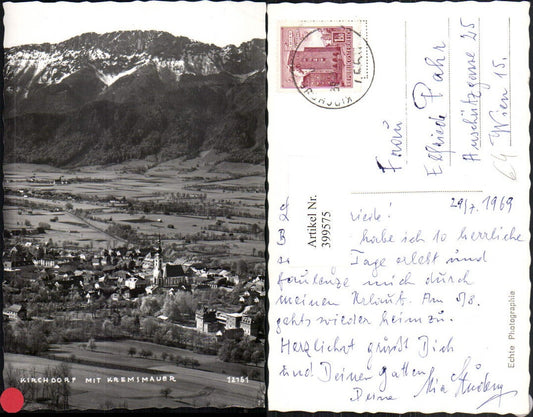 KIRCHDORF MIT KREMSMAUER 12151
Frau
Elfriede Pahr
Anschützgasse 25
Wien 15.
64
29/7. 1969
Artikel Nr.
399575
riede!
habe ich 10 herrliche
Tage erlebt und
faulenze mich durch
meinen Urlaub. Am 3/8.
gehts wieder heimzu.
Herzlichst grüßt Dich
und Deinen Gatten
Deine Mia
Echte Photographie